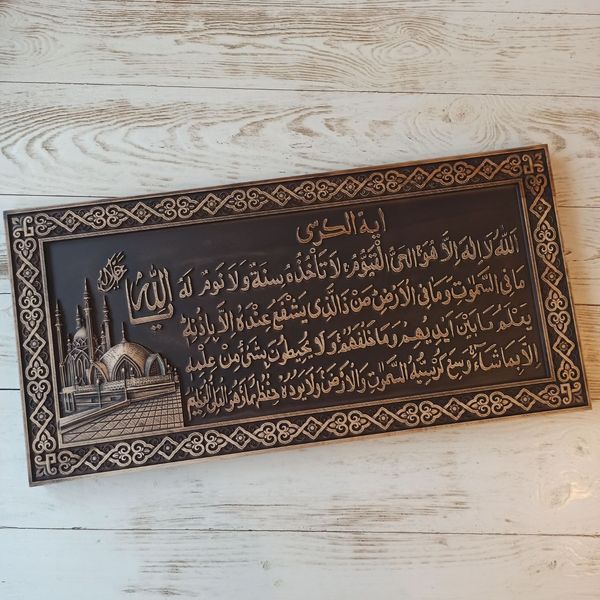 اية الكرسى
اَللّٰهُ لَا اِلٰهَ اِلَّا هُوَ الْحَىُّ الْقَيُّومُ لَا تَأْخُذُهُ سِنَةٌ وَلَا نَوْمٌ لَهُ
مَا فِى السَّمٰوَاتِ وَمَا فِى الْاَرْضِ مَنْ ذَا الَّذِى يَشْفَعُ عِنْدَهُ اِلَّا بِاِذْنِهِ
يَعْلَمُ مَا بَيْنَ اَيْدِيهِمْ وَمَا خَلْفَهُمْ وَلَا يُحِيطُونَ بِشَىْءٍ مِنْ عِلْمِهِ
اِلَّا بِمَا شَاءَ وَسِعَ كُرْسِيُّهُ السَّمٰوَاتِ وَالْاَرْضَ وَلَا يَؤُدُهُ حِفْظُهُمَا وَهُوَ الْعَلِىُّ الْعَظِيمُ
الله
جل جلاله